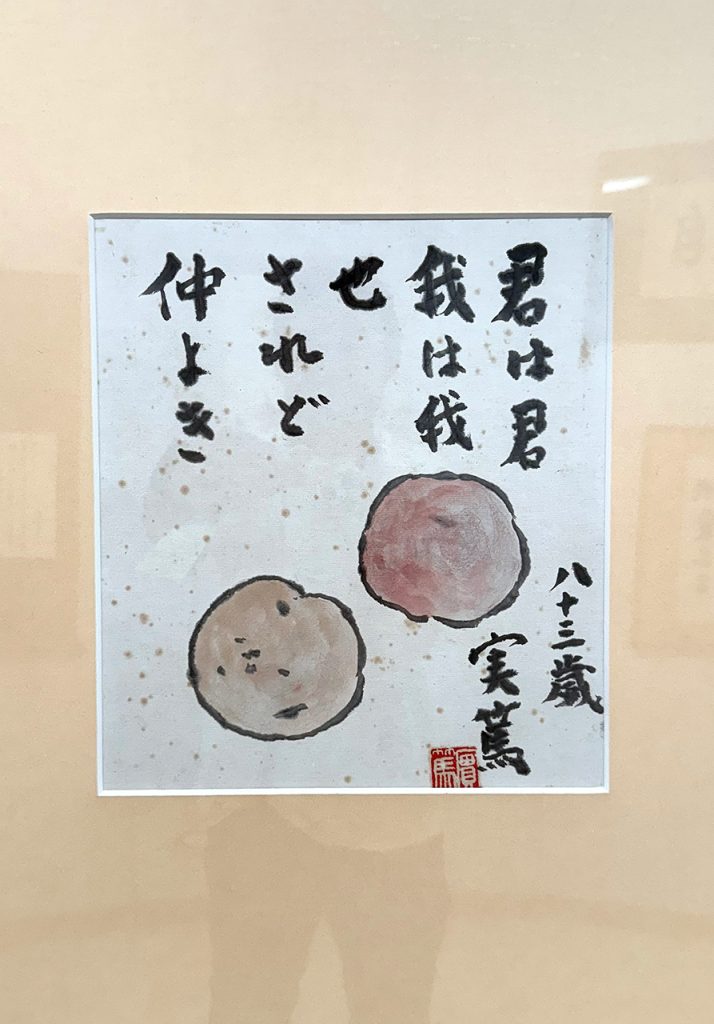 君は君
我は我
也
されど
仲よき
八十三歳
実篤
實篤